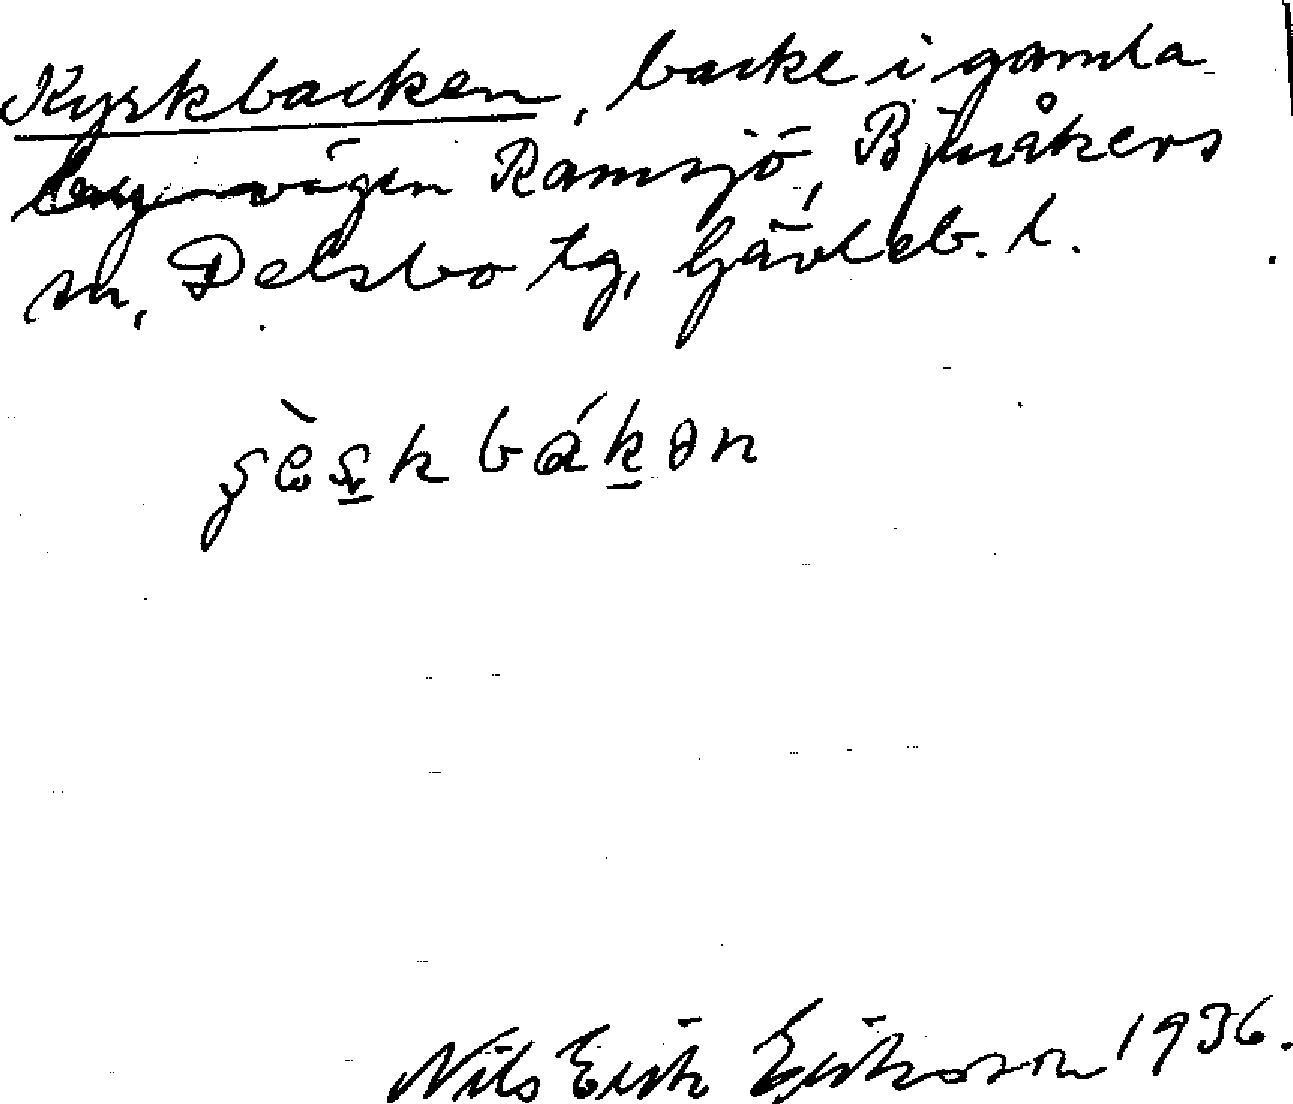 Kyrkbacken, backe i gamla
vägen Ramsjö, Bjuråkers
sn, Delsbo tg, Gävleb. l.
Nils Erik Eriksson 1936.